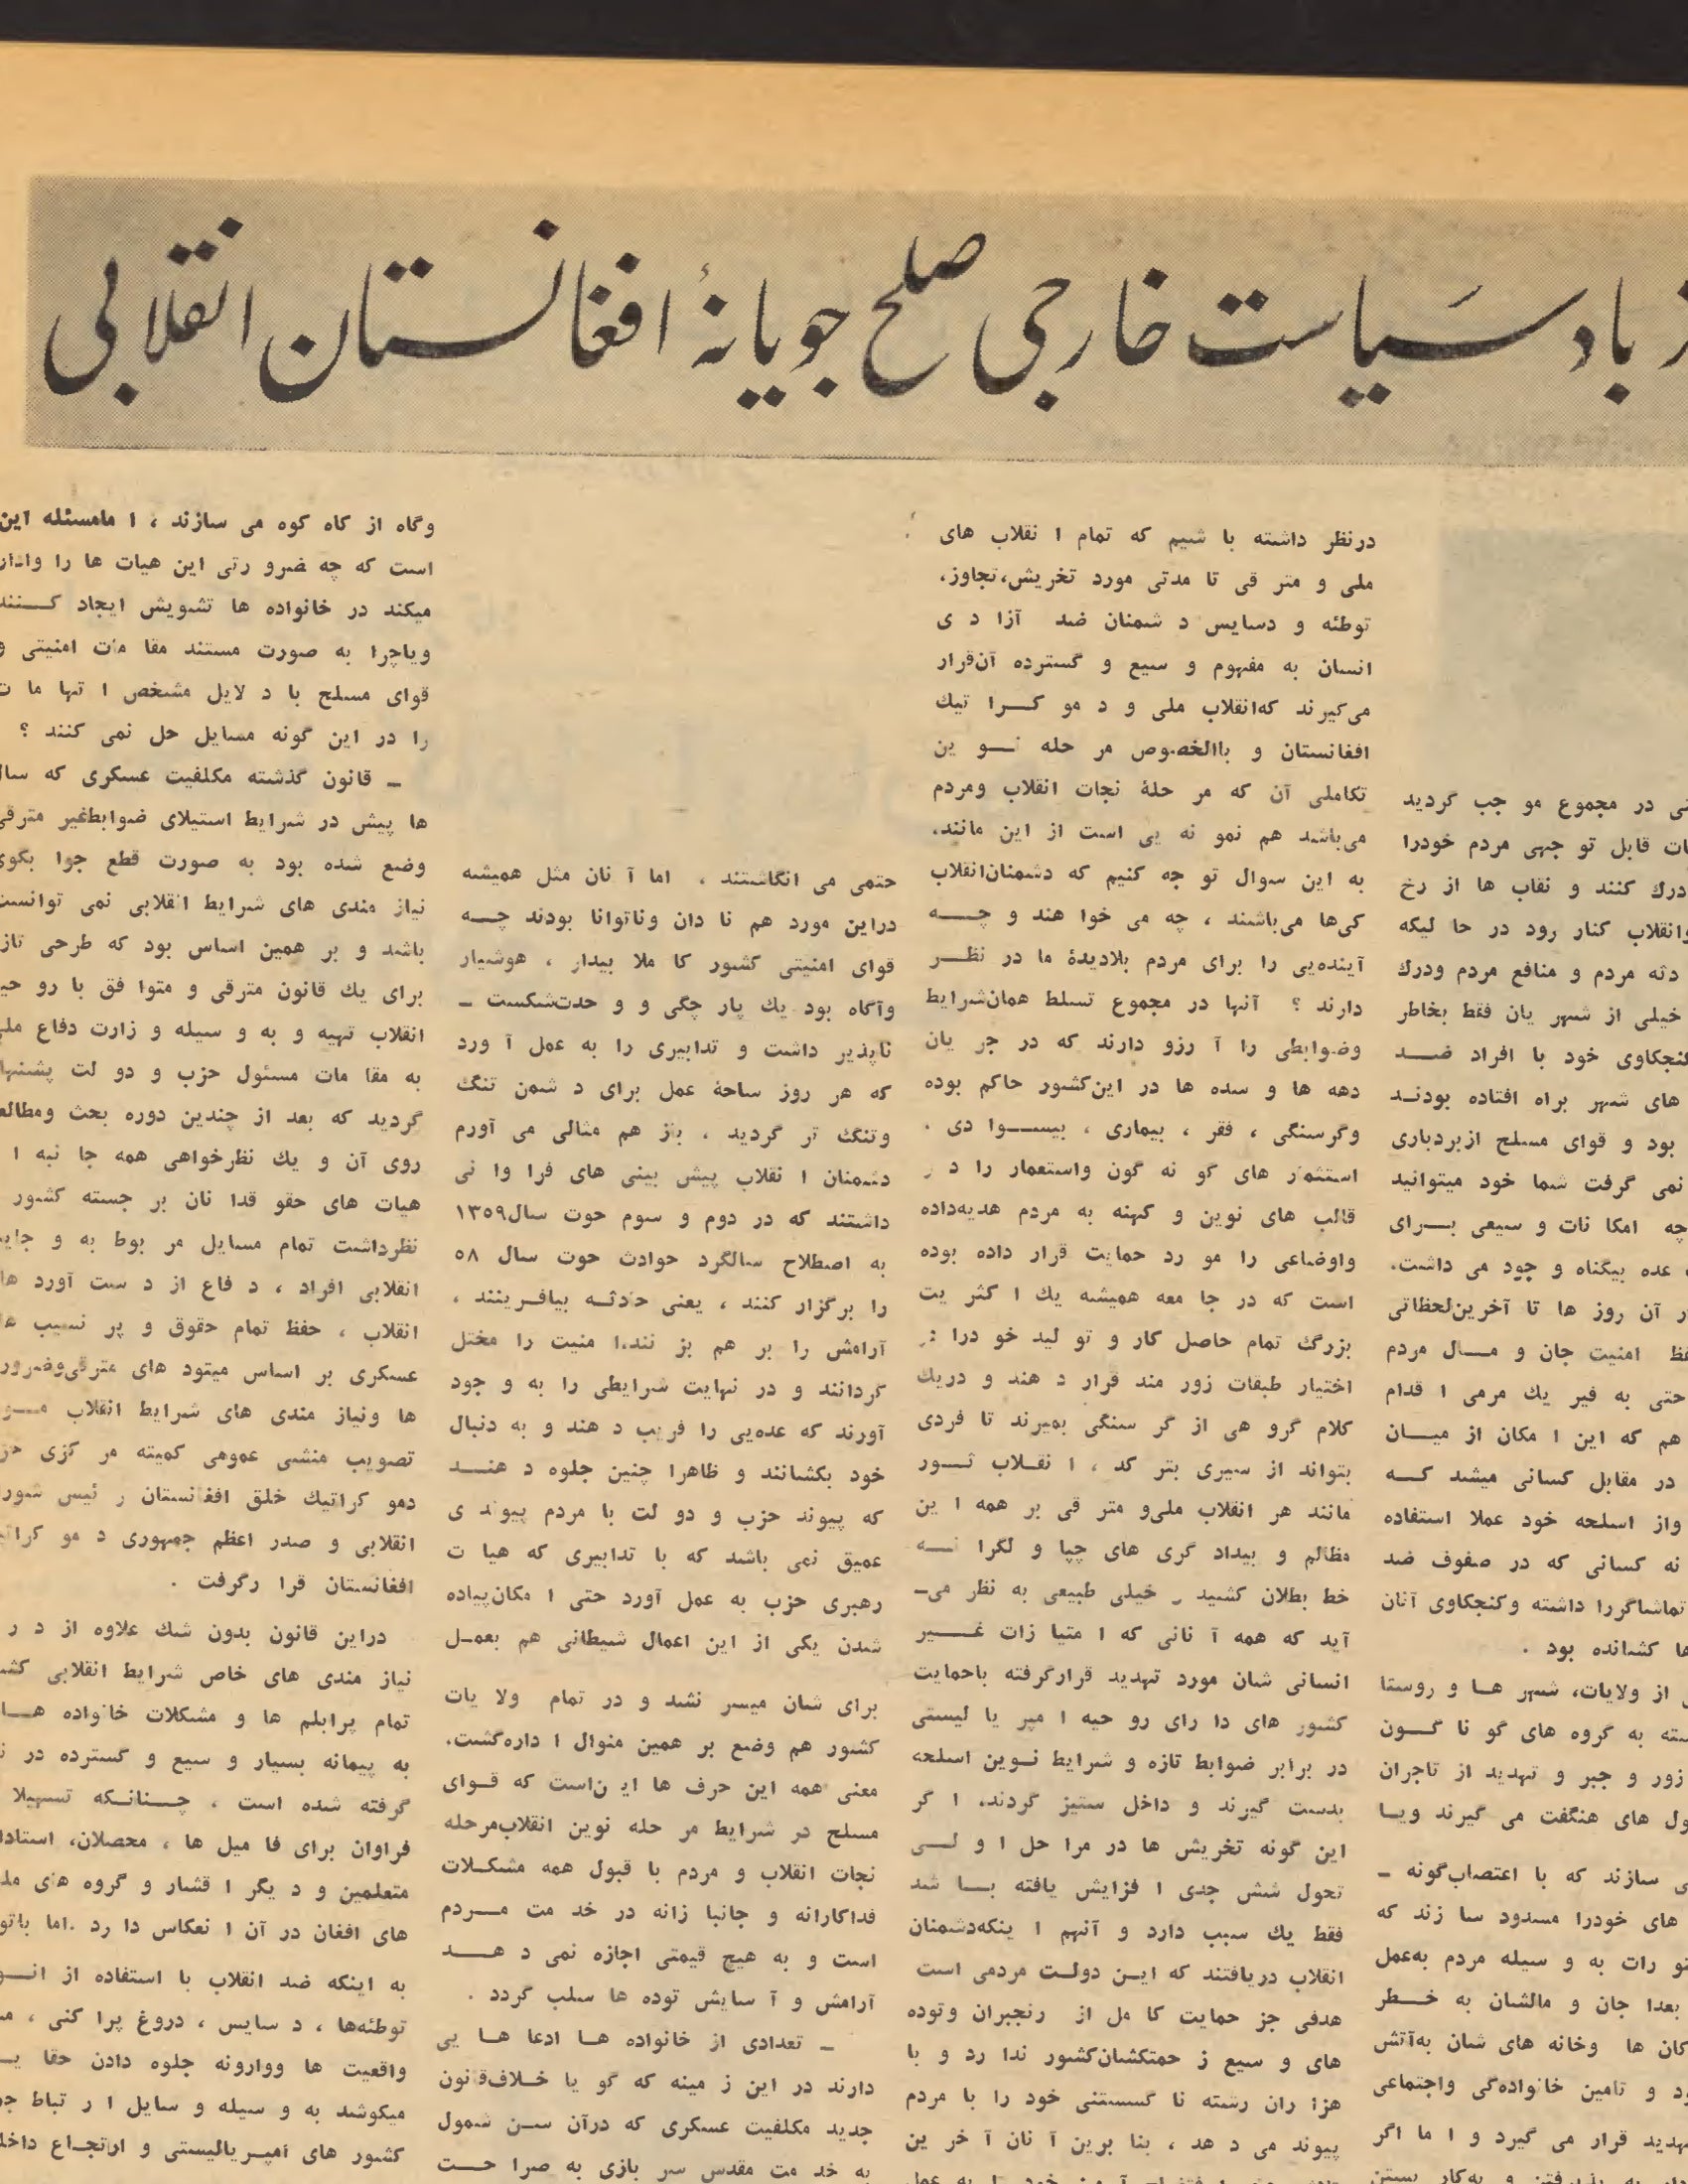 باد سیاست خارجی صلح جویانهٔ افغانستان انقلابی
در مجموع مو جب گردید
قابل تو جهی مردم خودرا
درك کنند و نقاب ها از رخ
وانقلاب کنار رود در حا لیکه
دثه مردم و منافع مردم ودرك
خیلی از شهر یان فقط بخاطر
کنجکاوی خود با افراد ضـــد
های شهر براه افتاده بودنـد
بود و قوای مسلح ازبردباری
نمی گرفت شما خود میتوانید
چه امکا نات و سیعی بـــرای
عده بیگناه و جود می داشت.
آن روز ها تا آخرین‌لحظاتی
امنیت جان و مـــال مردم
حتی به فیر یك مرمی ا قدام
هم که این ا مکان از میـــان
در مقابل کسانی میشد کـــه
واز اسلحه خود عملا استفاده
نه کسانی که در صفوف ضد
تماشاگررا داشته وکنجکاوی آنان
کشانده بود .
از ولایات، شهر هـا و روستا
به گروه های گو نا گـــون
زور و جبر و تهدید از تاجران
های هنگفت می گیرند ویـا
سازند که با اعتصاب‌گونه ـ
های خودرا مسدود سا زند که
رات به و سیله مردم به‌عمل
بعدا جان و مالشان به خـــطر
ها وخانه های شان به‌آتش
و تامین خانواده‌گی واجتماعی
قرار می گیرد و ا ما اگر
و به‌کار بستن
درنظر داشته با شیم که تمام ا نقلاب های
ملی و متر قی تا مدتی مورد تخریش،تجاوز،
توطئه و دسایس د شمنان ضد آزا د ی
انسان به مفهوم و سیع و گسترده آن‌قرار
می‌گیرند که‌انقلاب ملی و د مو کـــرا تیك
افغانستان و باالخصوص مر حله نـــو ین
تکاملی آن که مر حلهٔ نجات انقلاب ومردم
می‌باشد هم نمو نه یی است از این مانند.
به این سوال تو جه کنیم که دشمنان‌انقلاب
کی‌ها می‌باشند ، چه می خوا هند و چـــه
آینده‌یی را برای مردم بلادیدهٔ ما در نظـــر
دارند ؟ آنها در مجموع تسلط همان‌شرایط
وضوابطی را آ رزو دارند که در جر یان
دهه ها و سده ها در این‌کشور حاکم بوده
وگرسنگی ، فقر ، بیماری ، بیســـوا دی .
استثمار های گو نه گون واستعمار را د ر
قالب های نوین و کهنه به مردم هدیه‌داده
واوضاعی را مو رد حمایت قرار داده بوده
است که در جا معه همیشه یك ا کثر یت
بزرگ تمام حاصل کار و تو لید خو درا در
اختیار طبقات زور مند قرار د هند و دریك
کلام گرو هی از گر سنگی بمیرند تا فردی
بتواند از سیری بتر کد ، ا نقـلاب ثـــور
مانند هر انقلاب ملی‌و متر قی بر همه ا ین
مظالم و بیداد گری های چپا و لگرا نـــه
خط بطلان کشید ـ خیلی طبیعی به نظر می‌ـ
آید که همه آ نانی که ا متیا زات غـــیر
انسانی شان مورد تهدید قرارگرفته باحمایت
کشور های دا رای رو حیه ا مپر یا لیستی
در برابر ضوابط تازه و شرایط نـوین اسلحه
بدست گیرند و داخل ستیز گردند. ا گر
این گونه تخریش ها در مرا حل ا و لـــی
تحول شش جدی ا فزایش یافته بـــا شد
فقط یك سبب دارد و آنهم ا ینکه‌دشمنان
انقلاب دریافتند که ایـن دولت مردمی است
هدفی جز حمایت کا مل از رنجبران وتوده
های و سیع ز حمتکشان‌کشور ندا رد و با
هزا ران رشته نا گسستنی خود را با مردم
پیوند می د هد ، بنا برین آ نان آ خر ین
حتمی می انگاشتند . اما آ نان مثل همیشه
دراین مورد هم نا دان وناتوانا بودند چـــه
قوای امنیتی کشور کا ملا بیدار ، هوشیار
وآگاه بود یك پار چگی و و حدت‌شکست ـ
ناپذیر داشت و تدابیری را به عمل آ ورد
که هر روز ساحهٔ عمل برای د شمن تنگ
وتنگ تر گردید . باز هم مثالی می آورم
دشمنان ا نقلاب پیش بینی های فرا وا نی
داشتند که در دوم و سوم حوت سال۱۳۵۹
به اصطلاح سالگرد حوادث حوت سال ۵۸
را برگزار کنند ، یعنی حادثـه بیافـرینند ،
آرامش را بر هم بز نند،ا منیت را مختل
گردانند و در نهایت شرایطی را به و جود
آورند که عده‌یی را فریب د هند و به دنبال
خود بکشانند و ظاهرا چنین جلوه د هنـــد
که پیوند حزب و دو لت با مردم پیوند ی
عمیق نمی باشد که با تدابیری که هیا ت
رهبری حزب به عمل آورد حتی ا مکان‌پیاده
شدن یکی از این اعمال شیطانی هم بعمـل
برای شان میسر نشد و در تمام ولا یات
کشور هم وضع بر همین منوال ا داره‌گشت.
معنی همه این حرف ها این‌است که قـوای
مسلح در شرایط مر حله نوین انقلاب‌مرحله
نجات انقلاب و مردم با قبول همه مشکـلات
فداکارانه و جانبا زانه در خد مت مـــردم
است و به هیچ قیمتی اجازه نمی د هـــد
آرامش و آ سایش توده ها سلب گردد .
ـ تعدادی از خانواده هـا ادعا هـا یی
دارند در این ز مینه که گو یا خـلاف‌قانون
جدید مکلفیت عسکری که درآن سـن شمول
به خد مت مقدس سر بازی به صرا حـــت
وگاه از کاه کوه می سازند ، ا مامسئله این
است که چه ضرو رتی این هیات ها را وادار
میکند در خانواده ها تشویش ایجاد کـــنند
ویاچرا به صورت مستند مقا مات امنیتی و
قوای مسلح با د لایل مشخص ا تها ما ت
را در این گونه مسایل حل نمی کنند ؟
ـ قانون گذشته مکلفیت عسکری که سال
ها پیش در شرایط استیلای ضوابط‌غیر مترقی
وضع شده بود به صورت قطع جوا بگوی
نیاز مندی های شرایط انقلابی نمی توانست
باشد و بر همین اساس بود که طرحی تازه
برای یك قانون مترقی و متوا فق با رو حیه
انقلاب تهیه و به و سیله و زارت دفاع ملی
به مقا مات مسئول حزب و دو لت پیشنهاد
گردید که بعد از چندین دوره بحث ومطالعه
روی آن و یك نظرخواهی همه جا نبه ا
هیات های حقو قدا نان بر جسته کشور
نظرداشت تمام مسایل مر بوط به و جایب
انقلابی افراد ، د فاع از د ست آورد های
انقلاب ، حفظ تمام حقوق و پر نسیب های
عسکری بر اساس میتود های مترقی‌وضرورت
ها ونیاز مندی های شرایط انقلاب مـــو
تصویب منشی عمومی کمیته مر کزی حزب
دمو کراتیك خلق افغانستان ر ئیس شورای
انقلابی و صدر اعظم جمهوری د مو کراتیك
افغانستان قرا رگرفت .
دراین قانون بدون شك علاوه از د ر
نیاز مندی های خاص شرایط انقلابی کشور
تمام پرابلم ها و مشکلات خانواده هـــا
به پیمانه بسیار و سیع و گسترده در
گرفته شده است ، چـنانـکه تسهیلا
فراوان برای فا میل ها ، محصلان، استادان
متعلمین و د یگر ا قشار و گروه های ملیت
های افغان در آن ا نعکاس دا رد .اما باتوجه
به اینکه ضد انقلاب با استفاده از انـــواع
توطئه‌ها ، د سایس ، دروغ پرا کنی ،
واقعیت ها ووارونه جلوه دادن حقا یـــق
میکوشد به و سیله و سایل ا ر تباط جمعی
کشور های امپـریالیستی و ارتجـاع داخلی